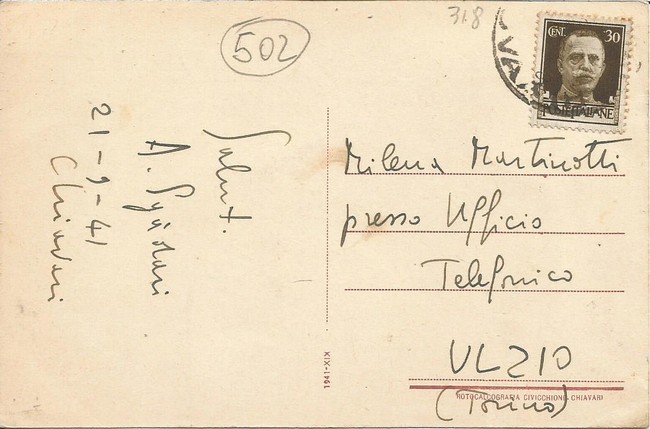 502
318
CENT. 30
POSTE ITALIANE
Salut.
21-9-41
Chiavari
Milena Martinotti
presso Ufficio
Telefonico
ULZIO
(Torino)
1941-XIX
ROTOCALCOGRAFIA CIVICCHIONI - CHIAVARI